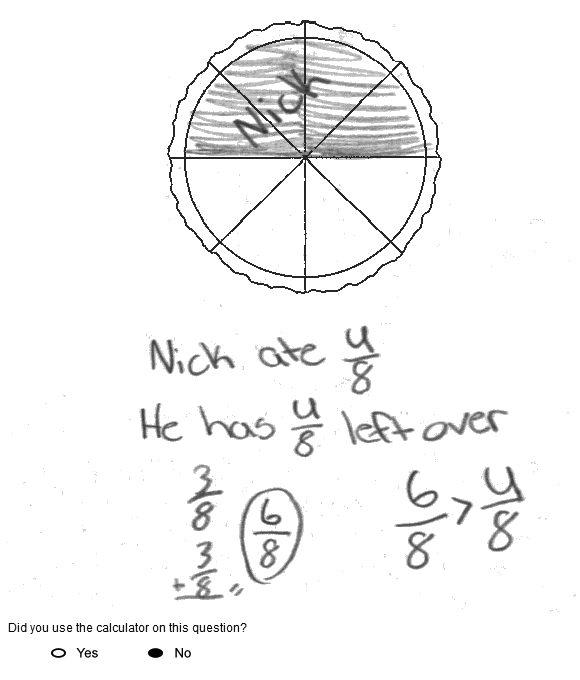 Nick
Nick ate 4/8
He has 4/8 left over
3/8
+ 3/8 = 6/8
6/8 > 4/8
Did you use the calculator on this question?
Yes No